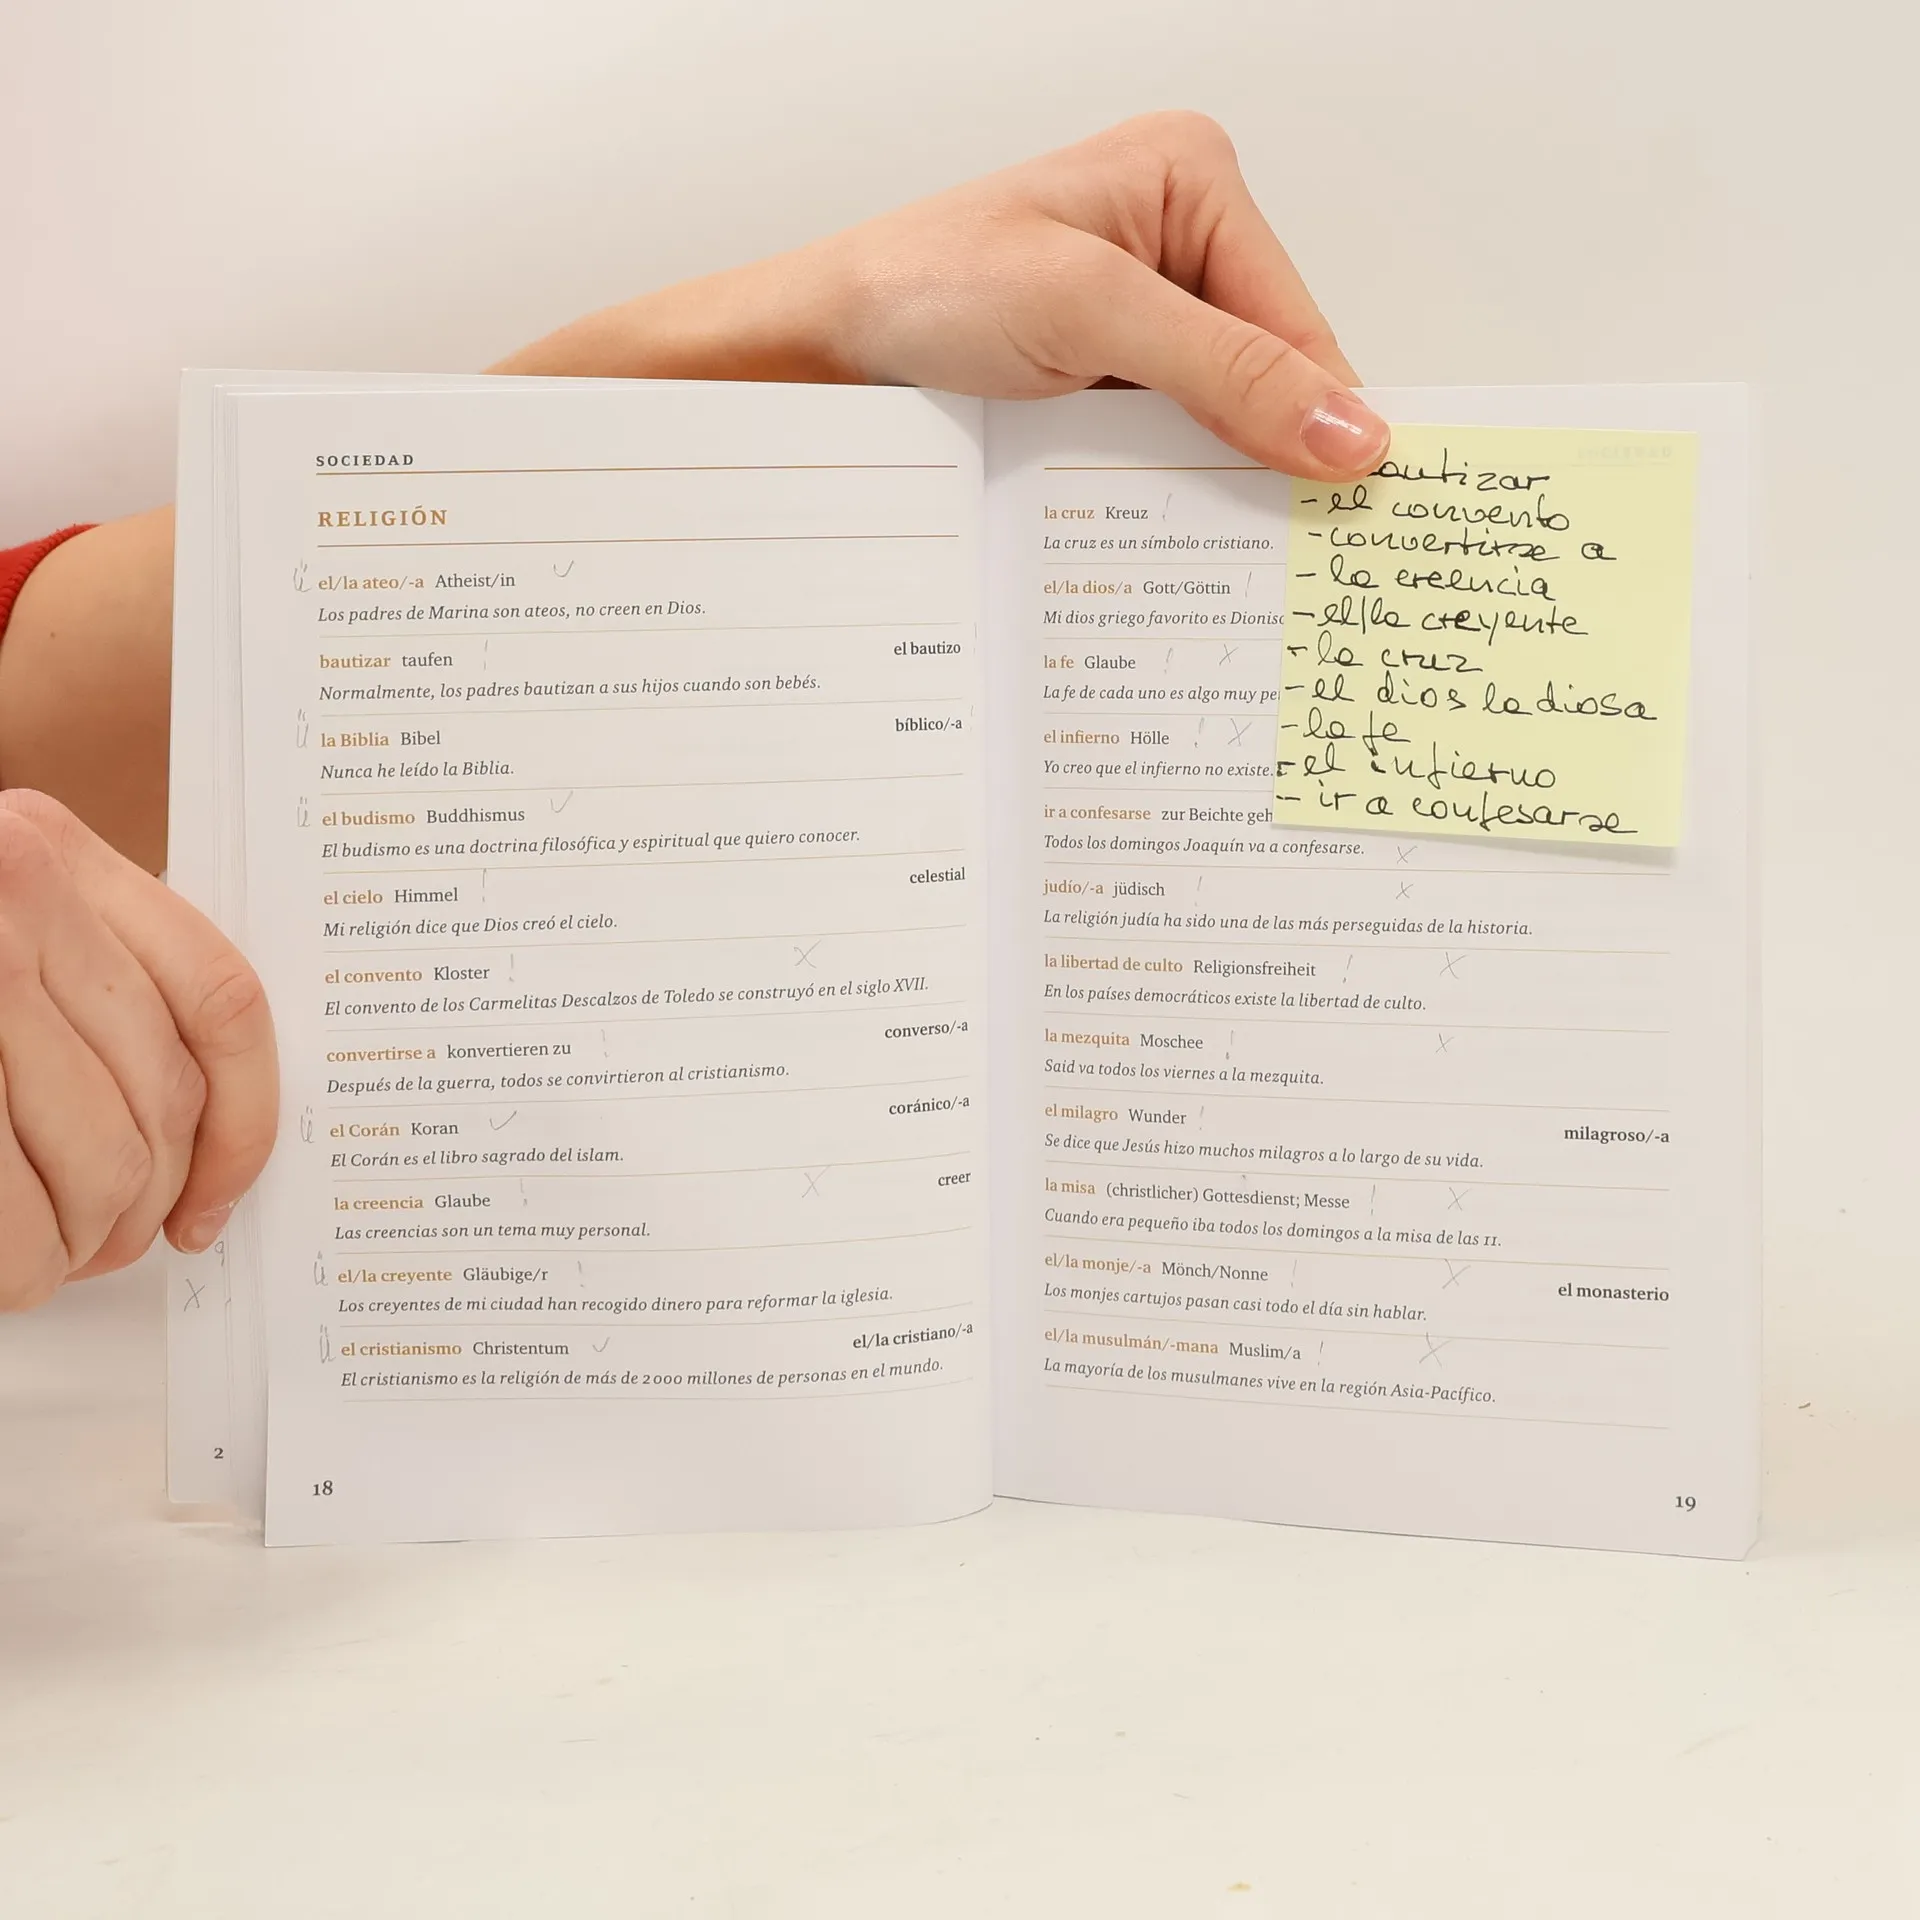 SOCIEDAD
RELIGIÓN
el/la ateo/-a Atheist/in
Los padres de Marina son ateos, no creen en Dios.
bautizar taufen el bautizo
Normalmente, los padres bautizan a sus hijos cuando son bebés.
la Biblia Bibel bíblico/-a
Nunca he leído la Biblia.
el budismo Buddhismus
El budismo es una doctrina filosófica y espiritual que quiero conocer.
el cielo Himmel celestial
Mi religión dice que Dios creó el cielo.
el convento Kloster
El convento de los Carmelitas Descalzos de Toledo se construyó en el siglo XVII.
convertirse a konvertieren zu converso/-a
Después de la guerra, todos se convirtieron al cristianismo.
el Corán Koran coránico/-a
El Corán es el libro sagrado del islam.
la creencia Glaube creer
Las creencias son un tema muy personal.
el/la creyente Gläubige/r
Los creyentes de mi ciudad han recogido dinero para reformar la iglesia.
el cristianismo Christentum el/la cristiano/-a
El cristianismo es la religión de más de 2000 millones de personas en el mundo.
2
18
la cruz Kreuz
La cruz es un símbolo cristiano.
el/la dios/a Gott/Göttin
Mi dios griego favorito es
la fe Glaube
La fe de cada uno es algo muy
el infierno Hölle
Yo creo que el infierno no existe.
ir a confesarse zur Beichte
Todos los domingos Joaquín va a confesarse.
judío/-a jüdisch
La religión judía ha sido una de las más perseguidas de la historia.
la libertad de culto Religionsfreiheit
En los países democráticos existe la libertad de culto.
la mezquita Moschee
Said va todos los viernes a la mezquita.
el milagro Wunder milagroso/-a
Se dice que Jesús hizo muchos milagros a lo largo de su vida.
la misa (christlicher) Gottesdienst; Messe
Cuando era pequeño iba todos los domingos a la misa de las 11.
el/la monje/-a Mönch/Nonne el monasterio
Los monjes cartujos pasan casi todo el día sin hablar.
el/la musulmán/-mana Muslim/a
La mayoría de los musulmanes vive en la región Asia-Pacífico.
19
autizar
- el convento
- convertirse a
- la creencia
- el/la creyente
- la cruz
- el dios la diosa
- la fe
- el infierno
- ir a confesarse